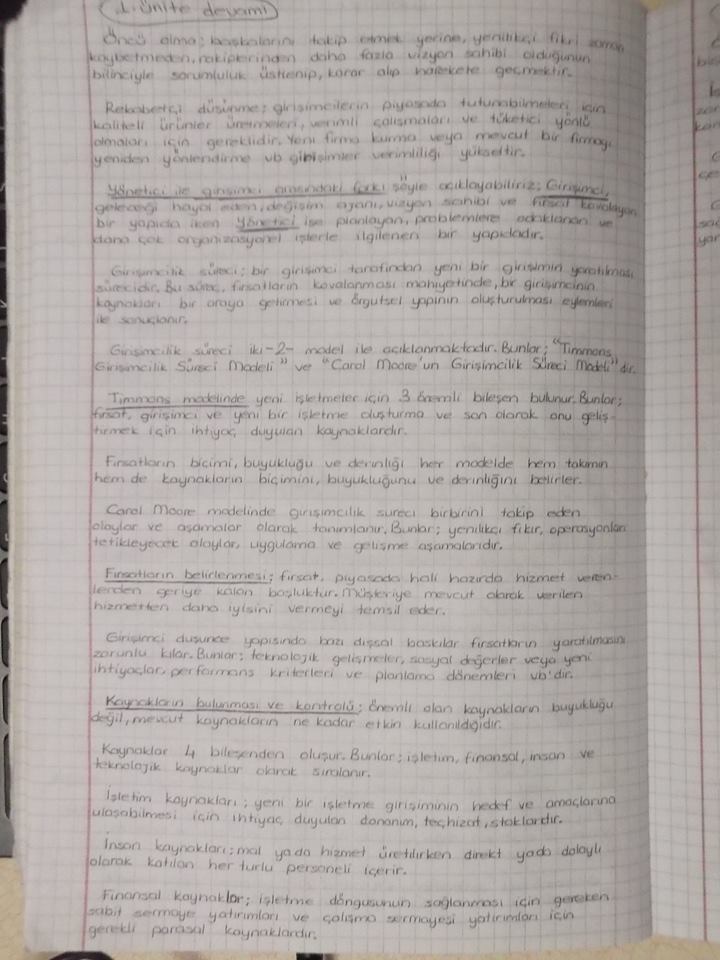 1. ünite devamı
Öncü olma; başkalarını takip etmek yerine, yenilikçi fikri zaman
kaybetmeden, rakiplerinden daha fazla vizyon sahibi olduğunun
bilinciyle sorumluluk üstlenip, karar alıp harekete geçmektir.
Rekabetçi düşünme; girişimcilerin piyasada tutunabilmeleri için
kaliteli ürünler üretmeleri, verimli çalışmaları ve tüketici yönlü
olmaları için gereklidir. Yeni firma kurma veya mevcut bir firmayı
yeniden yönlendirme vb girişimler verimliliği yükseltir.
Yönetici ile girişimci arasındaki farkı şöyle açıklayabiliriz; Girişimci,
geleceği hayal eden, değişim ajanı, vizyon sahibi ve fırsat kovalayan
bir yapıda iken Yönetici ise planlayan, problemlere odaklanan ve
daha çok organizasyonel işlerle ilgilenen bir yapıdadır.
Girişimcilik süreci; bir girişimci tarafından yeni bir girişimin yaratılması
sürecidir. Bu süreç, fırsatların kovalanması mahiyetinde, bir girişimcinin
kaynakları bir araya getirmesi ve örgütsel yapının oluşturulması eylemleri
ile sonuçlanır.
Girişimcilik süreci iki-2- model ile açıklanmaktadır. Bunlar; "Timmons
Girişimcilik Süreci Modeli" ve "Carol Moore'un Girişimcilik Süreci Modeli"dir.
Timmons modelinde yeni işletmeler için 3 önemli bileşen bulunur. Bunlar;
fırsat, girişimci ve yeni bir işletme oluşturma ve son olarak onu geliş-
tirmek için ihtiyaç duyulan kaynaklardır.
Fırsatların biçimi, buyukluğu ve derinliği her modelde hem takımın
hem de kaynakların biçimini, buyukluğunu ve derinliğini belirler.
Carol Moore modelinde girişimcilik sureci birbirini takip eden
olaylar ve aşamalar olarak tanımlanır. Bunlar; yenilikçi fikir, operasyonları
tetikleyecek olaylar, uygulama ve gelişme aşamalarıdır.
Fırsatların belirlenmesi; fırsat, piyasada hali hazırda hizmet veren-
lerden geriye kalan boşluktur. Müşteriye mevcut olarak verilen
hizmetten daha iyisini vermeyi temsil eder.
Girişimci dusunce yapısında bazı dışsal baskılar fırsatların yaratılmasını
zorunlu kılar. Bunlar; teknolojik gelişmeler, sosyal değerler veya yeni
ihtiyaçlar, performans kriterleri ve planlama dönemleri vb'dir.
Kaynakların bulunması ve kontrolü; önemli olan kaynakların buyukluğu
değil, mevcut kaynakların ne kadar etkin kullanıldığıdır.
Kaynaklar 4 bileşenden oluşur. Bunlar; işletim, finansal, insan ve
teknolojik kaynaklar olarak sıralanır.
İşletim kaynakları; yeni bir işletme girişiminin hedef ve amaçlarına
ulaşabilmesi için ihtiyaç duyulan donanım, teçhizat, stoklardır.
İnsan kaynakları; mal yada hizmet üretilirken direkt yada dolaylı
olarak katılan her turlu personeli içerir.
Finansal kaynaklar; işletme döngusunun sağlanması için gereken
sabit sermaye yatırımları ve çalışma sermayesi yatırımları için
gerekli parasal kaynaklardır.